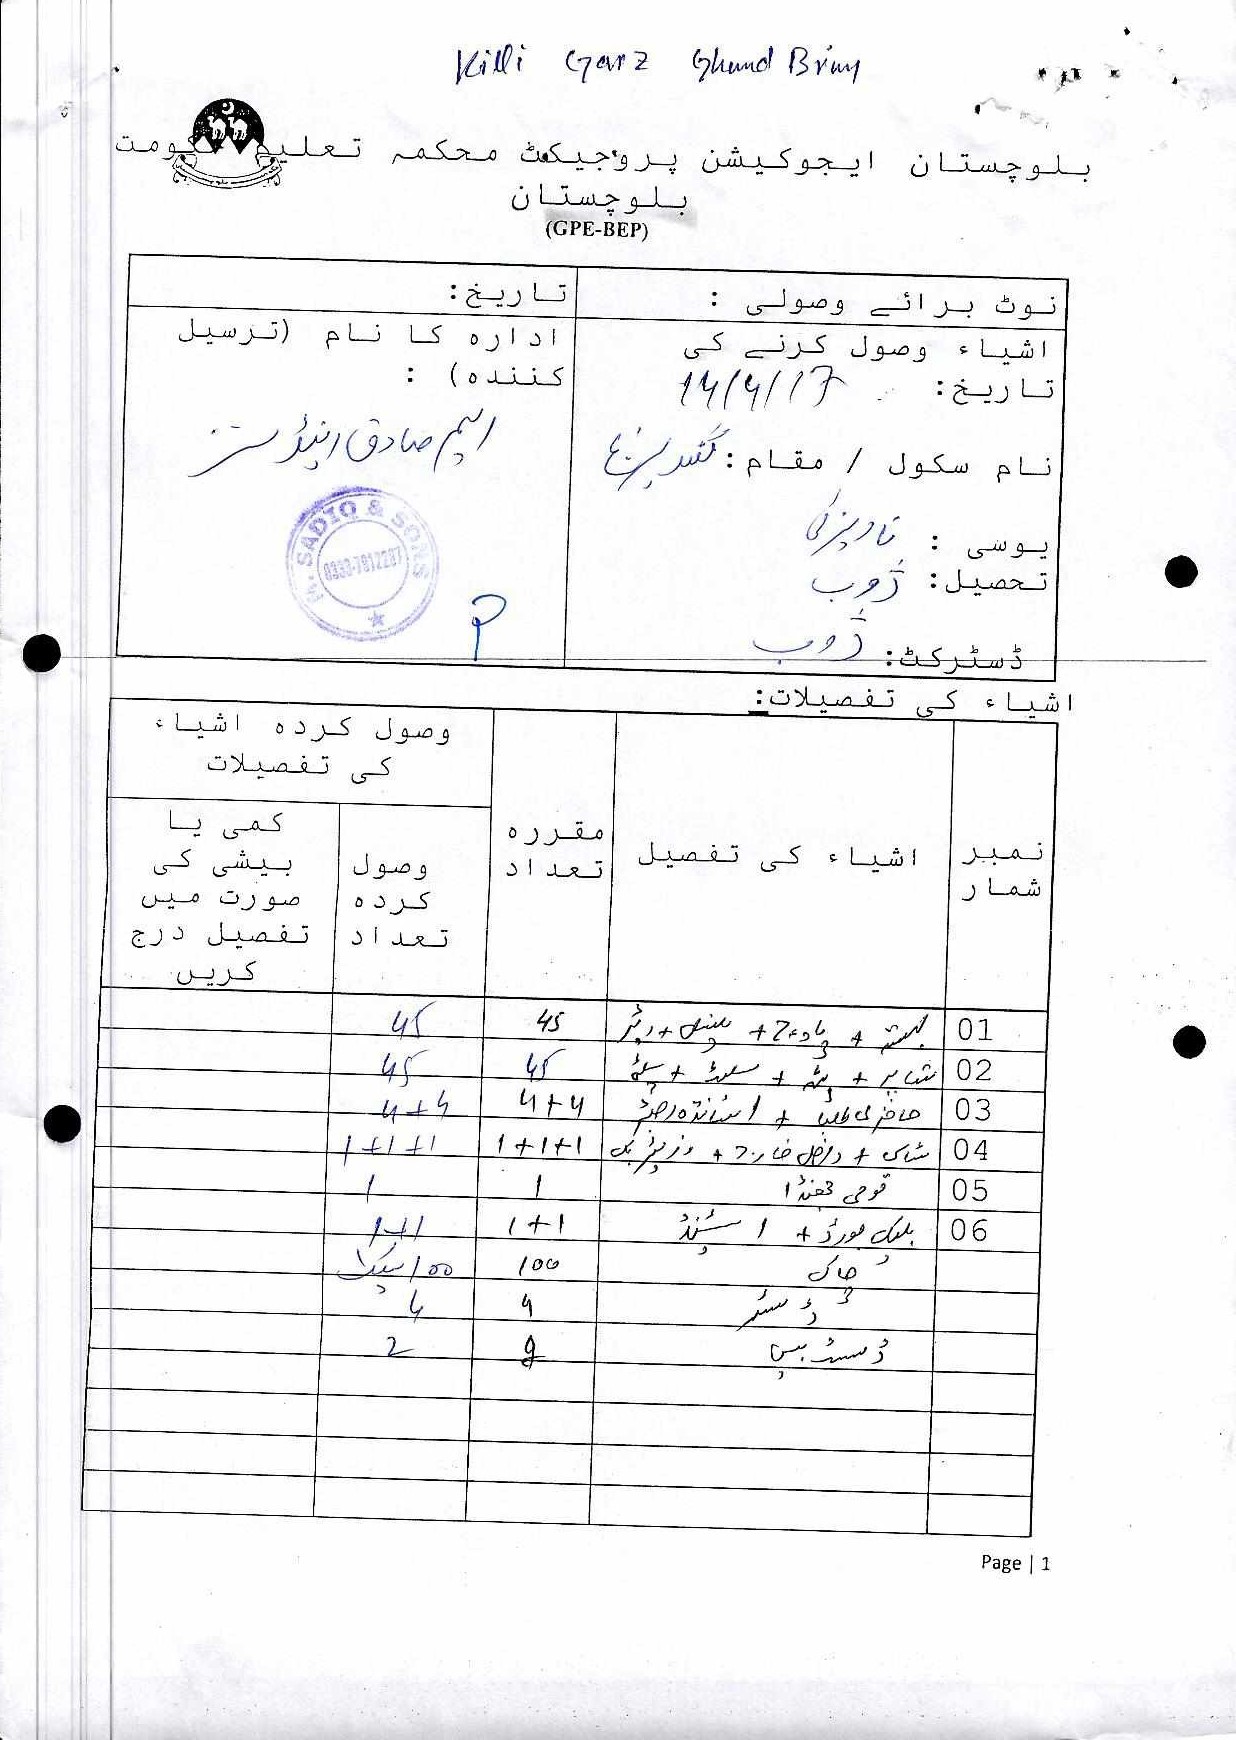 Killi Garz Ghund Briny
بلوچستان ایجوکیشن پروجیکٹ محکمہ تعلیم حکومت
بلوچستان
(GPE-BEP)
نوٹ برائے وصولی :
تاریخ:
اشیاء وصول کرنے کی
تاریخ: 14/4/17
نام سکول / مقام:
یوسی :
تحصیل: ژوب
ڈسٹرکٹ: ژوب
ادارہ کا نام (ترسیل
کنندہ) :
ایم صادق اینڈ سنز
M. SADIQ & SONS
0333-7812237
اشیاء کی تفصیلات:
نمبر شمار
اشیاء کی تفصیل
مقررہ تعداد
وصول کردہ اشیاء کی تفصیلات
وصول کردہ تعداد
کمی یا بیشی کی صورت میں تفصیل درج کریں
01 بستہ + + پنسل + ربڑ 45 45
02 شاپنر + + سلیٹ + 45 45
03 حاضری طلبا + اساتذہ 4+4 4+4
04 سٹاک + داخل خارج + وزیٹر بک 1+1+1 1+1+1
05 قومی جھنڈا 1 1
06 بلیک بورڈ + اسٹینڈ 1+1 1+1
چاک 100 100 پیکٹ
ڈسٹر 4 4
ڈسٹ بن 2 2
Page | 1